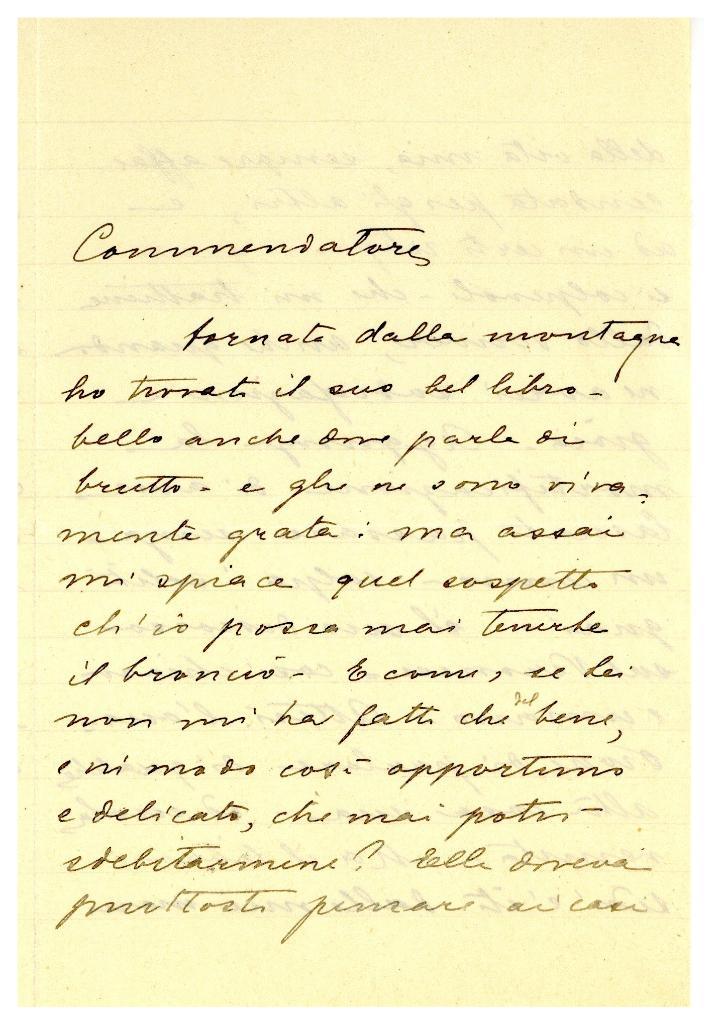 Commendatore,
tornata dalla montagna
ho trovato il suo bel libro -
bello anche dove parla di
brutto - e glie ne sono viva-
mente grata: ma assai
mi spiace quel sospetto
ch'io possa mai tenerle
il broncio - E come, se Lei
non mi ha fatto che del bene,
e in modo così opportuno
e delicato, che mai potrò
sdebitarmene? Ella doveva
piuttosto pensare ai casi